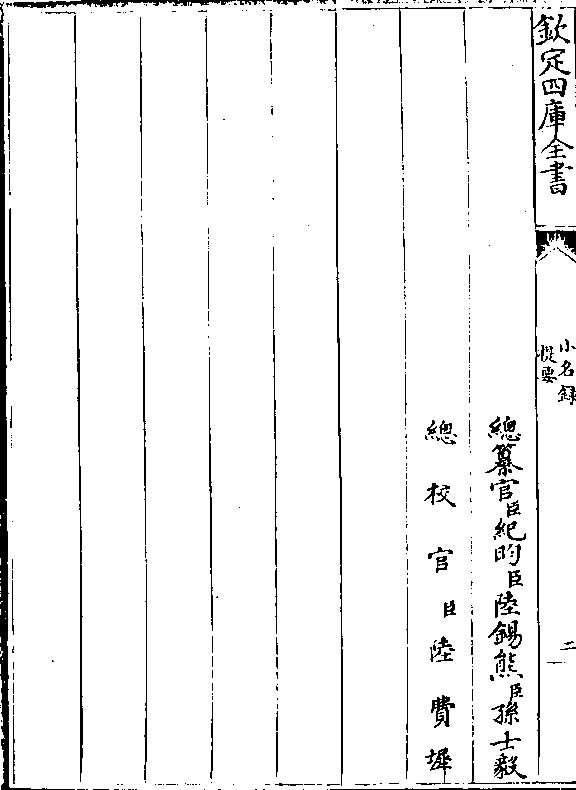 欽定四庫全書
小名録
提要
二
總纂官臣紀昀臣陸錫熊臣孫士毅
總校官臣陸費墀